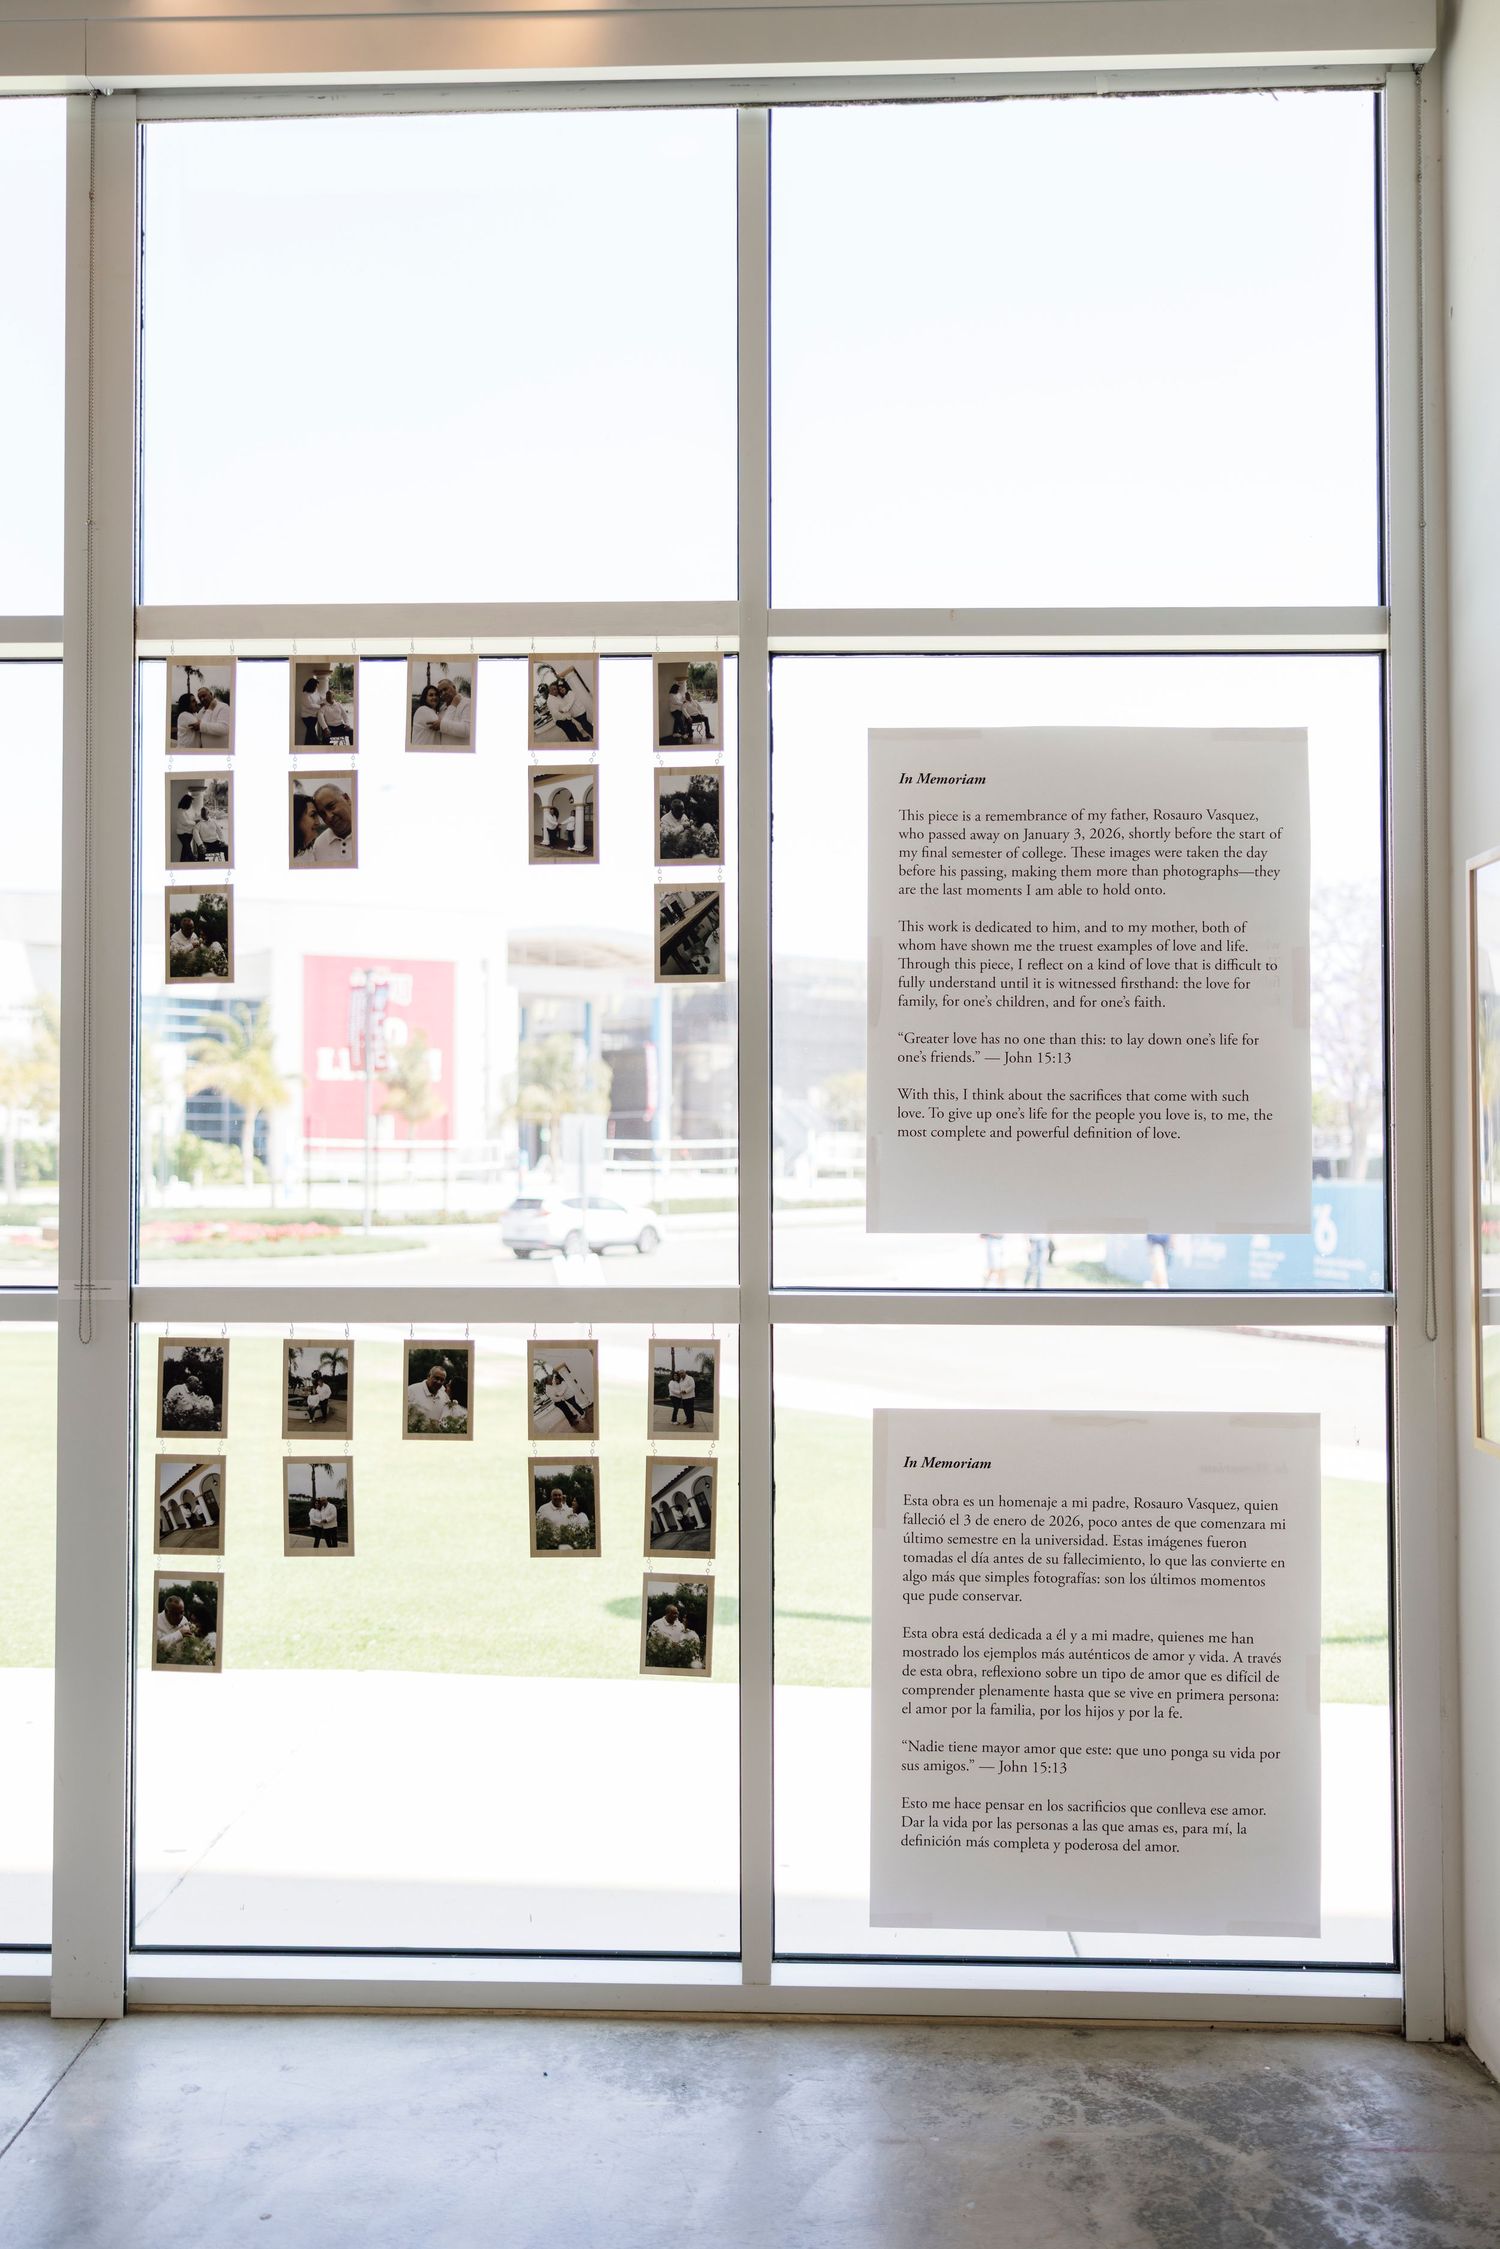 In Memoriam
This piece is a remembrance of my father, Rosauro Vasquez,
who passed away on January 3, 2026, shortly before the start of
my final semester of college. These images were taken the day
before his passing, making them more than photographs—they
are the last moments I am able to hold onto.
This work is dedicated to him, and to my mother, both of
whom have shown me the truest examples of love and life.
Through this piece, I reflect on a kind of love that is difficult to
fully understand until it is witnessed firsthand: the love for
family, for one’s children, and for one’s faith.
“Greater love has no one than this: to lay down one’s life for
one’s friends.” — John 15:13
With this, I think about the sacrifices that come with such
love. To give up one’s life for the people you love is, to me, the
most complete and powerful definition of love.
In Memoriam
Esta obra es un homenaje a mi padre, Rosauro Vasquez, quien
falleció el 3 de enero de 2026, poco antes de que comenzara mi
último semestre en la universidad. Estas imágenes fueron
tomadas el día antes de su fallecimiento, lo que las convierte en
algo más que simples fotografías: son los últimos momentos
que pude conservar.
Esta obra está dedicada a él y a mi madre, quienes me han
mostrado los ejemplos más auténticos de amor y vida. A través
de esta obra, reflexiono sobre un tipo de amor que es difícil de
comprender plenamente hasta que se vive en primera persona:
el amor por la familia, por los hijos y por la fe.
“Nadie tiene mayor amor que este: que uno ponga su vida por
sus amigos.” — John 15:13
Esto me hace pensar en los sacrificios que conlleva ese amor.
Dar la vida por las personas a las que amas es, para mí, la
definición más completa y poderosa del amor.